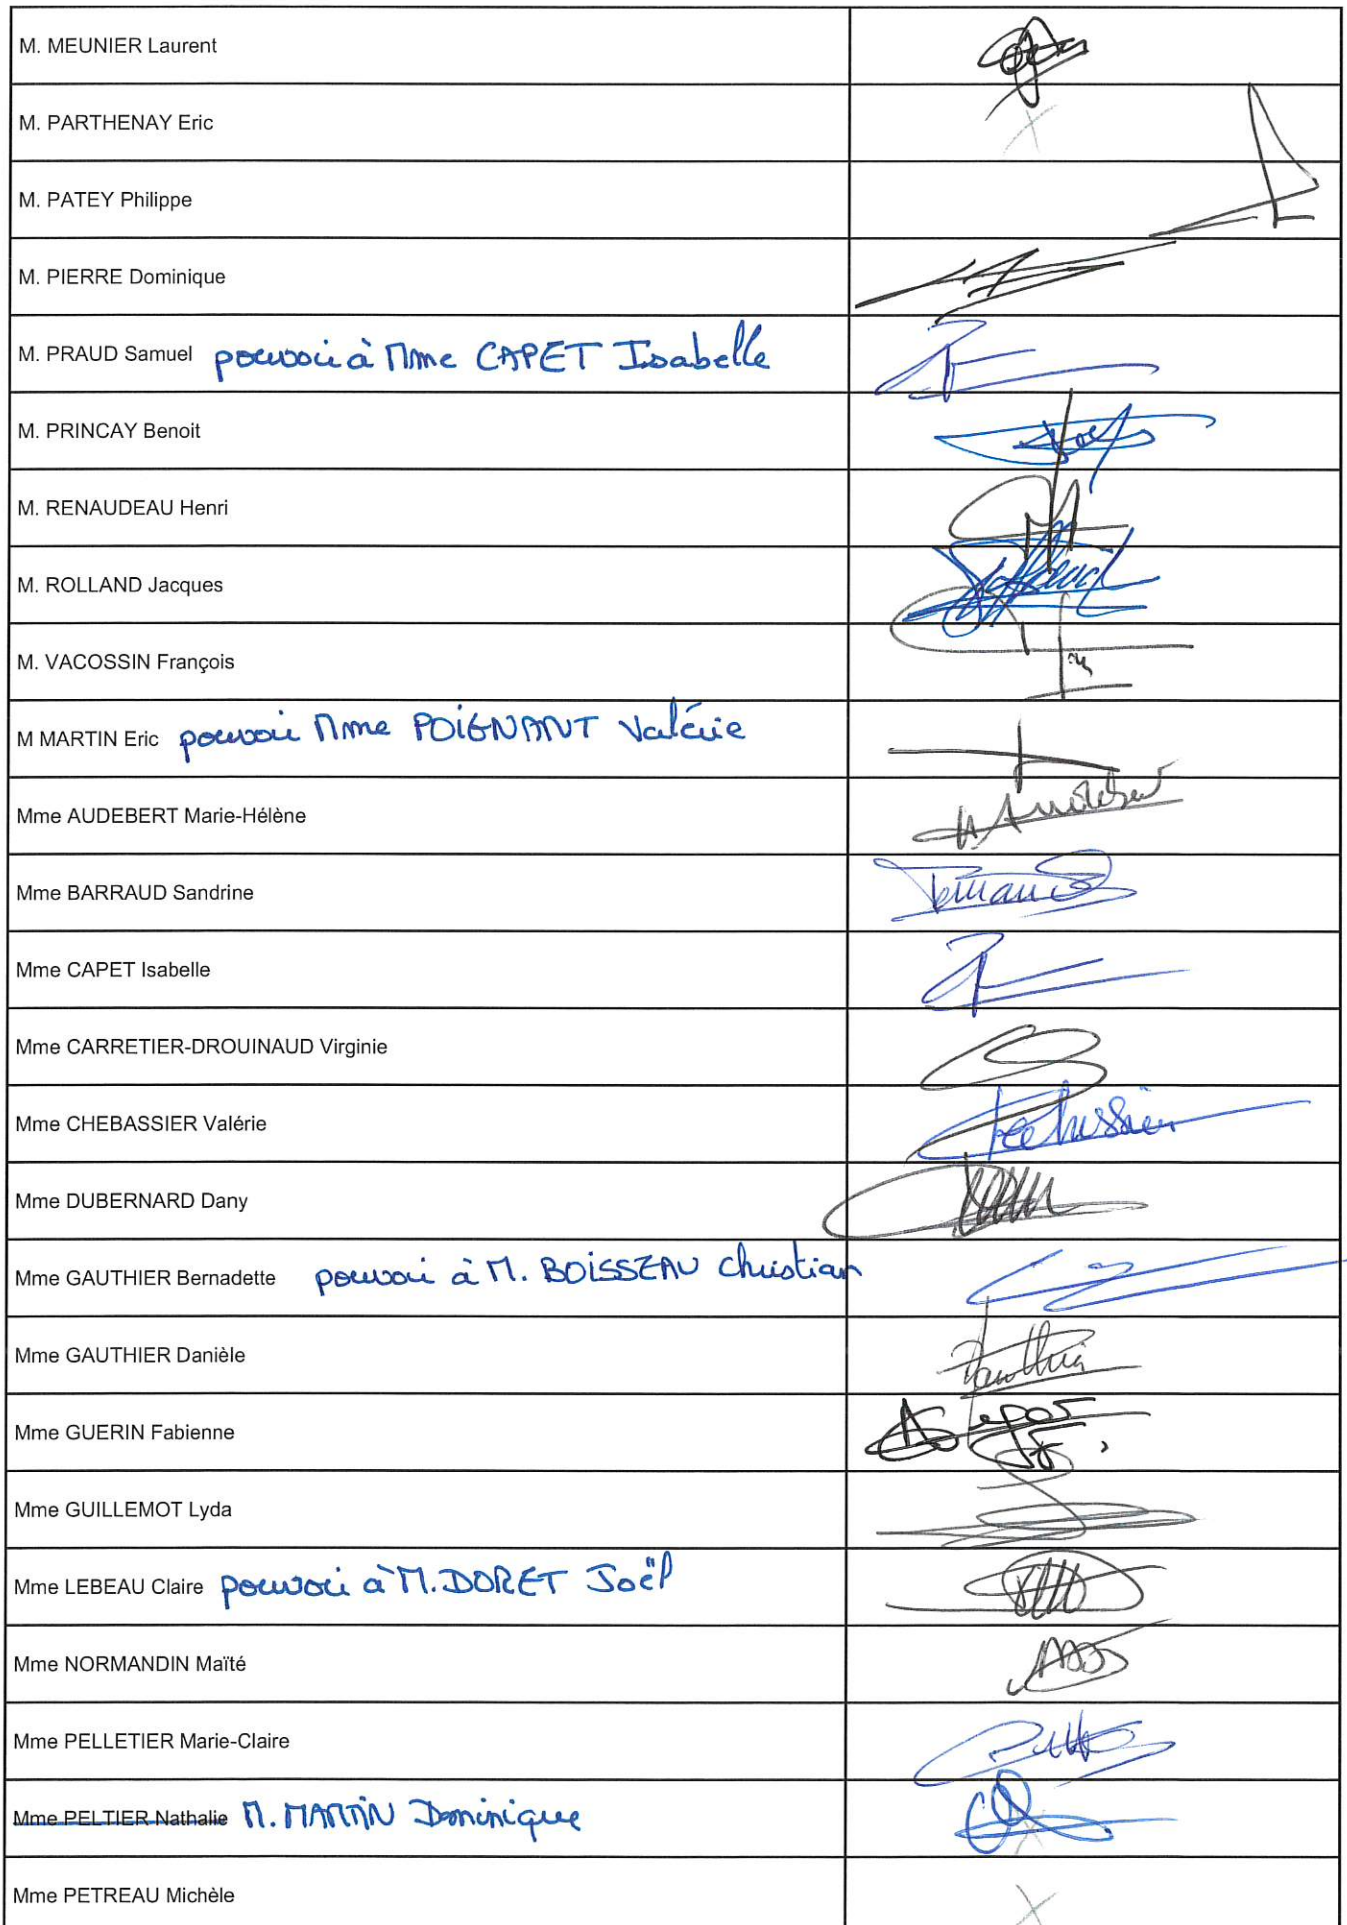 M. MEUNIER Laurent
M. PARTHENAY Eric
M. PATEY Philippe
M. PIERRE Dominique
M. PRAUD Samuel pouvoir à Mme CAPET Isabelle
M. PRINCAY Benoit
M. RENAUDEAU Henri
M. ROLLAND Jacques
M. VACOSSIN François
M MARTIN Eric pouvoir Mme POIGNANT Valérie
Mme AUDEBERT Marie-Hélène
Mme BARRAUD Sandrine
Mme CAPET Isabelle
Mme CARRETIER-DROUINAUD Virginie
Mme CHEBASSIER Valérie
Mme DUBERNARD Dany
Mme GAUTHIER Bernadette pouvoir à M. BOISSEAU Christian
Mme GAUTHIER Danièle
Mme GUERIN Fabienne
Mme GUILLEMOT Lyda
Mme LEBEAU Claire pouvoir à M. DORET Joël
Mme NORMANDIN Maïté
Mme PELLETIER Marie-Claire
Mme PELTIER Nathalie M. MARTIN Dominique
Mme PETREAU Michèle